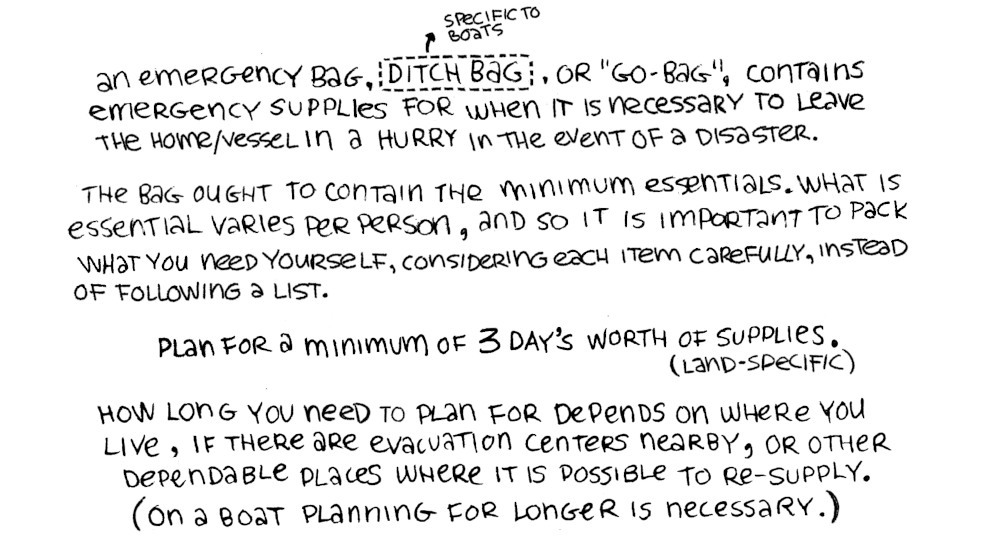 SPECIFIC TO
BOATS
an emergency bag, DITCH BAG, OR "GO-BAG", CONTAINS
emergency SUPPLIES FOR when IT IS necessary TO Leave
THE HOME/VESSEL IN a HURRY IN THE event OF a DISASTER.
THE BAG OUGHT TO contain THE minimum essentials. WHAT IS
essential varies per person, and so IT IS IMPORTANT TO Pack
WHAT YOU need YOURSELF, CONSIDERING each ITEM CAREFULLY, Instead
OF FOLLOWING a LIST.
Plan FOR a minimum OF 3 DAY'S WORTH OF SUPPLIES.
(LAND-SPECIFIC)
HOW LONG YOU need TO Plan FOR DePenDS on WHere YOU
LIVE, IF THERE are evacuation centers nearby, OR OTHER
Dependable Places WHERE IT IS POSSIBLE TO Re-SUPPLY.
(On a BOAT PLANNING FOR LONGER IS necessary.)